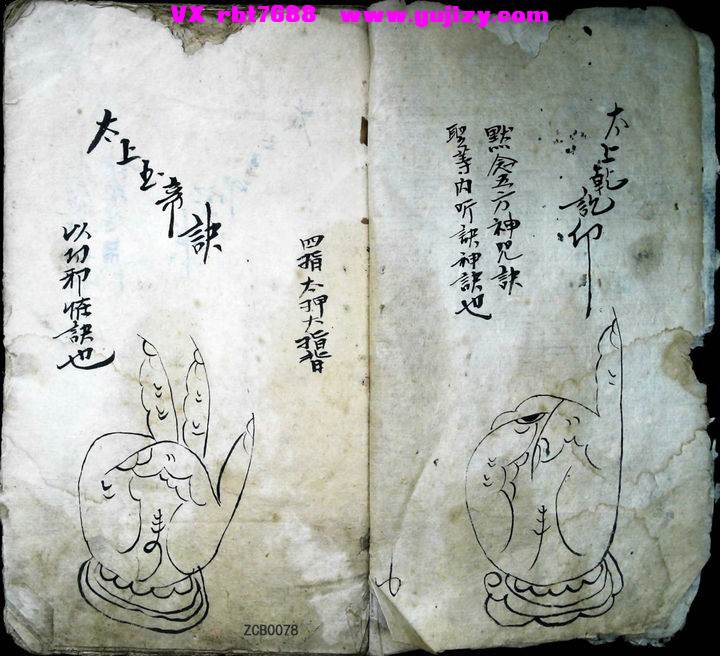 VX rbt7688 www.gujizy.com
太上乾訖仰
默念五方神咒訣
聖等內听訣神訣也
四指太押大指背
太上玉帝訣
以切邪怪訣也
ZCB0078